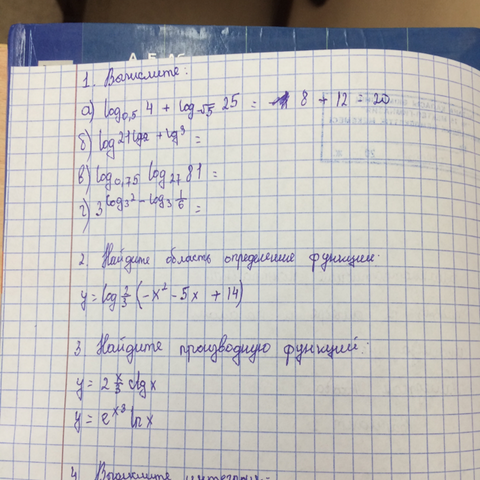 1. Вычислите:
а) log₀,₅ 4 + log√5 25 = 8 + 12 = 20
б) log 21lg2 + lg3 =
в) log₀,₇₅ log₂₇ 81 =
г) 3^(log₃2 - log₃ 1/6) =
2. Найдите область определения функции
y = log 2/3 (-x² - 5x + 14)
3 Найдите производную функций:
y = 2 x/3 ctg x
y = e^(x³) ln x
4. Вычислите